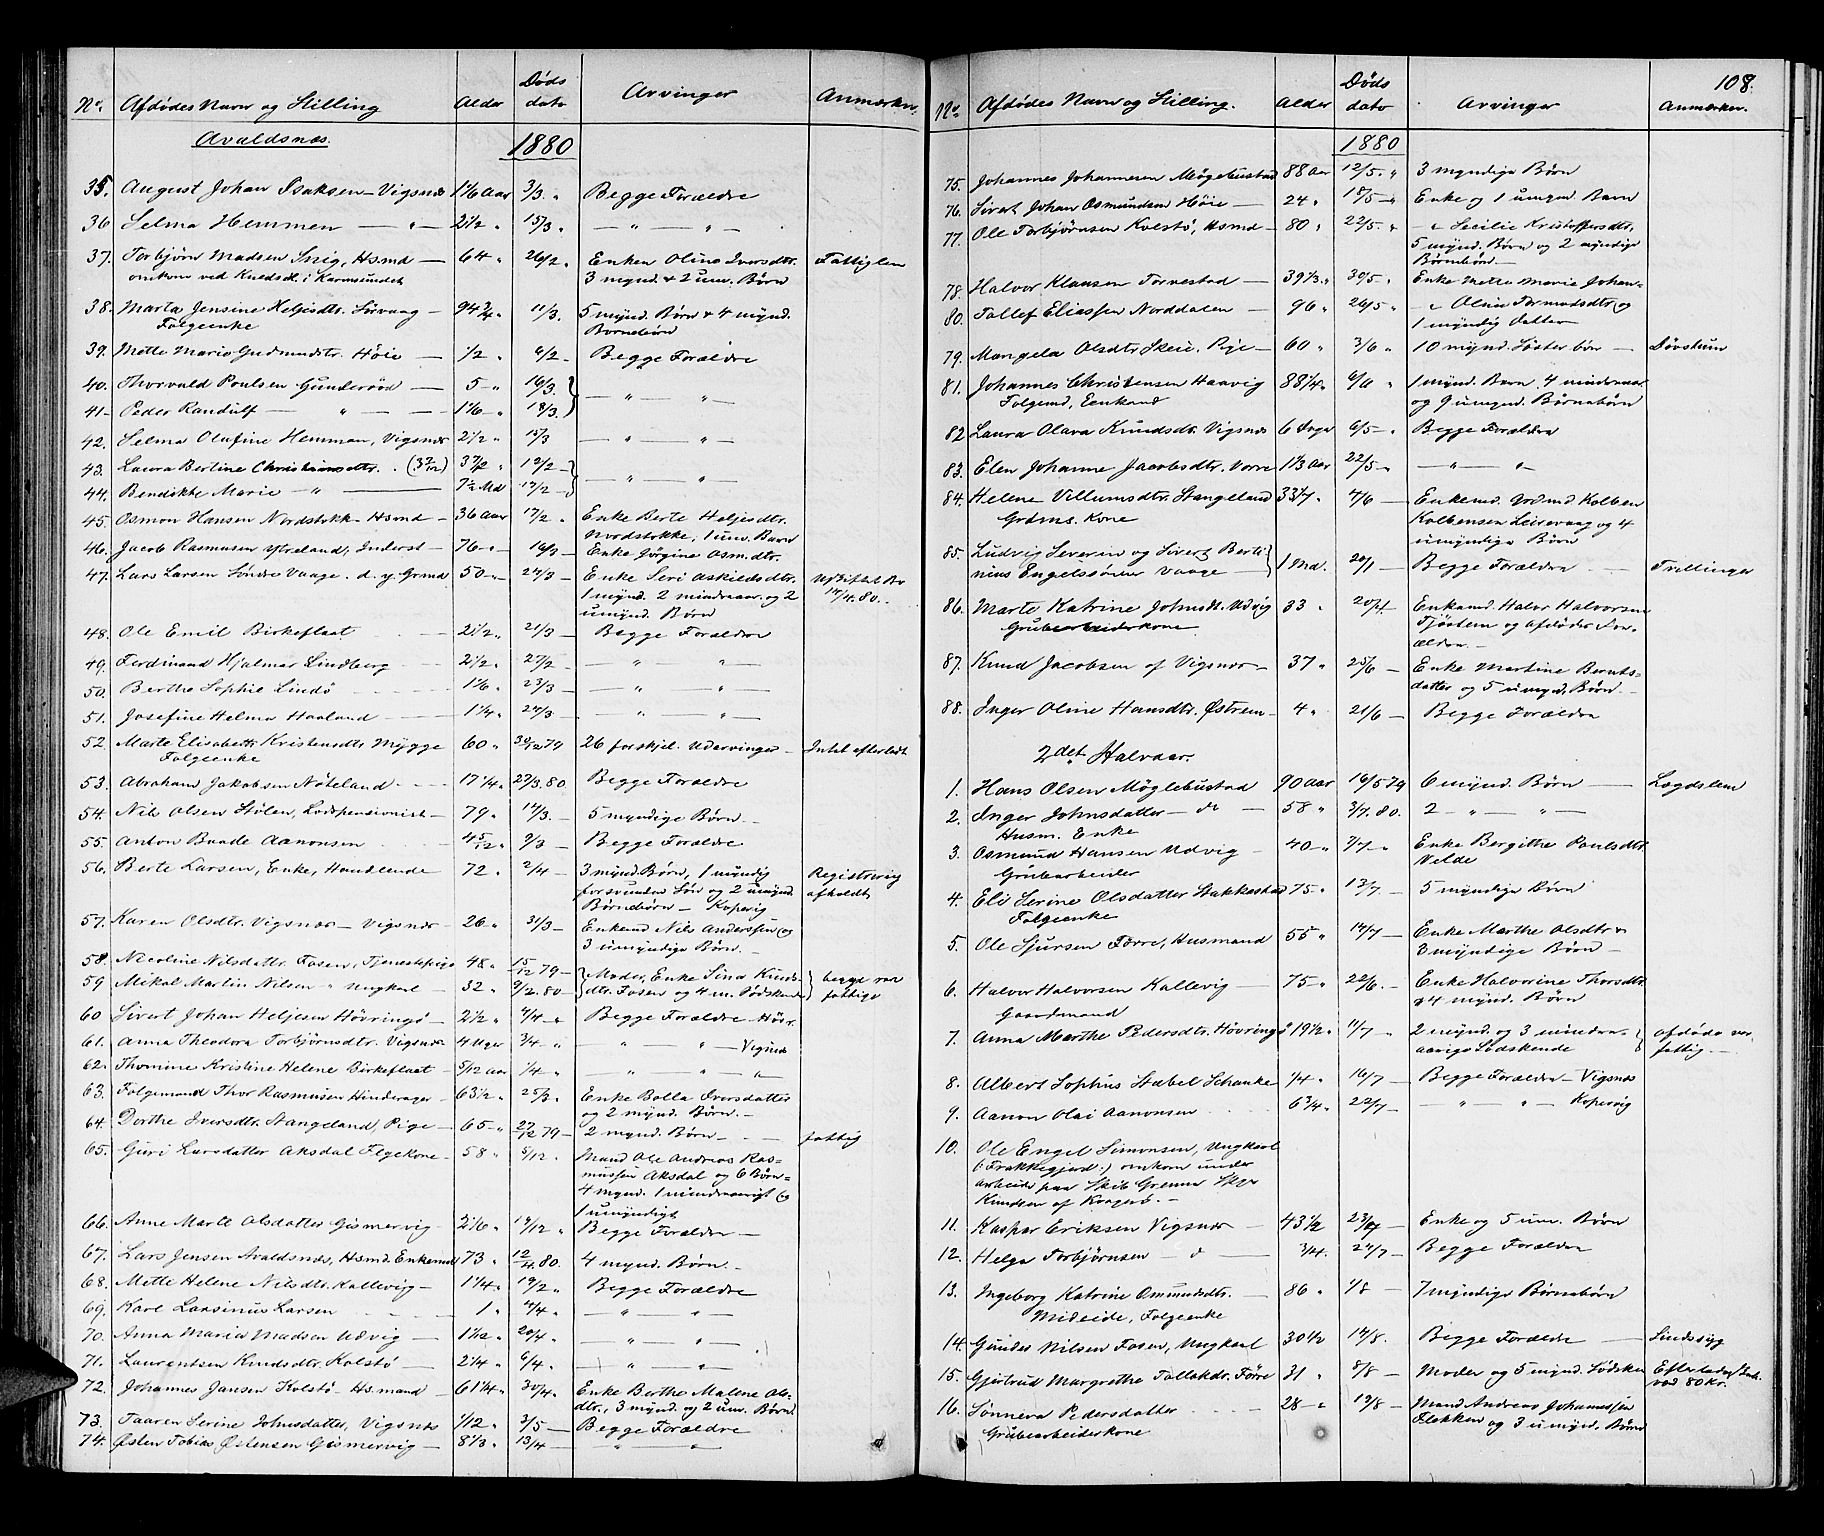 No. Afdødes Navn og Stilling Alder Døds dato Arvinger Anmærkn.
Avaldsnæs. 1880
35. August Johan Isaksen - Vigsnæs 1 1/6 Aar 3/3 " Begge Forældre
36 Selma Hemmen — " — 2 1/2 " 15/3 " — " — " —
37. Torbjörn Madsen Snig, Hsmd — 64 " 26/2 " Enken Oline Iversdtr. Fattiglem
omkom ved Kuldseil. i Karmsundet 3 mynd. & 2 um. Børn
38. Marta Jensine Heljesdtr. Sörvaag — 94 3/4 " 11/3. 5 mynd. Børn & 4 mynd.
Folgeenke Börnebörn
39. Mette Marie Gudmundstr. Höie — 1/2 " 6/2 — Begge Forældre
40. Thorvald Poulsen Gunderöd — 5 — " 16/3.
41 — Peder Randulf — " — — 1 1/6 — " 18/3. — " — " —
42. Selma Olufine Hemman, Vigsnæs 2 1/2 " 15/3 — " — " —
43. Laura Bertine Christiansdtr. . (3 7/12) 3 7/2 " 12/2 —
44. Bendikte Marie — " — 7 1/2 Md 12/2 — — " — " —
45. Osmon Hansen Nordstokk — Hsmd — 36 Aar 17/2 " Enke Berte Heljesdtr.
Nordstokke, 1 um. Barn
46. Jacob Rasmusen Ytreland, Inderst — 76 — " 16/3 — Enke Jörgine Osm.dtr.
47. Lars Larsen Söndre Vaage. d. y. Grmd 50 — " 24/3 — Enke Seri Askildsdtr.
1 mynd. 2 mindreaar. og 2 14/4. 80.
umynd. Børn
48. Ole Emil Birkeflaat — 2 1/2 " 21/3 — Begge Forældre
49. Ferdinand Hjalmar Lindberg 2 1/2 " 27/2 — — " — " —
50. Berthe Sophie Lindö 1 1/6 " 23/3 — — " — " —
51. Josefine Helma Haaland — 1 1/4 " 24/3 — — " — " —
52. Marte Elisabeth Kristensdtr Mygge 60 " 30/12 79 26 forskjel. Udarvinger — Intet efterladt
Folgeenke
53. Abraham Jakobsen Nöteland — 17 1/4 " 27/3. 80 Begge Forældre
54. Nils Olsen Stölen, Lodspensionist — 79 " 14/3. — 5 myndige Børn. —
55. Anton Baade Aanonsen 4 5/12 " 9/3 — Begge Forældre
56. Berte Larsen, Enke, Handlende 72 " 2/4 — 3 mynd. Børn, 1 myndig Registrering
forsvunden Søn og 2 umynd. afholdt
Børnebørn — Kopervig
57. Karen Olsdtr. Vigsnæs — Vigsnæs — 26 " 31/3 — Enkemd Nils Anderssen og
3 umyndige Børn. —
58. Nicoline Nilsdatter Fosen, Tjenestepige 48 " 15/12 79 — Moder, Enke Sina Knuds- begge var
59 Mikal Martin Nilsen " Ungkarl — 32 " 9/2. 80 — dtr. Fosen og 4 m. Södskende fattige
60 Sivert Johan Heljesen Hövringö — 2 1/2 " 4/4 — " Begge Forældre —
61. Anna Theodora Torbjørnsdtr. Vigsnæs 4 Uger 3/4 — " — " — " — Vigsnæs
62. Thomine Kristine Helene Birkeflaat — 5/12 Aar 1/4 — — " — " — "
63. Folgemand Thor Rasmusen Hinderager — 63 1/2 " 25/3 — Enke Bolla Iversdatter
og 2 mynd. Børn. —
64. Dorthe Iversdtr. Stangeland, Pige — 65 — " 27/12 79 — 2 mynd. Børn — fattig
65. Guri Larsdatter Aksdal Flgekone — 58 " 5/12. Mand Ole Andreas Ras-
mussen Aksdal og 6 Børn =
4 mynd. 1 mindreaarigt og
1 umyndigt
66. Anne Marte Olsdatter Gismervig — 2 1/6 " 19/12 " Begge Forældre —
67. Lars Jensen Avaldsnæs, Hsmd. Enkemd 73 " 12/4. 80. 4 mynd. Børn. —
68. Mette Helene Nilsdtr. Kallevig — 1 1/4 " 19/2 " Begge Forældre
69. Karl Larsinus Larsen 1 " 4/4 " — " — "
70. Anna Maria Madsen Udvig — 1 1/12 " 20/4 — " — " —
71. Laurentsen Knudsdtr. Kolstö — 2 1/4 " 6/4 " — " — " —
72. Johannes Jansen Kolstö — Hsmand — 61 1/4 " 30/4 " Enke Berthe Malene Ols-
dtr., 3 mynd. og 2 um. Børn.
73. Taaren Serine Johnsdatter, Vigsnæs 1/12 " 3/5 — Begge Forældre
74. Østen Tobias Østensen Gismervig — 8 1/3 " 13/4 " "
108.
No. Afdødes Navn og Stilling. Alder Døds dato Arvinger Anmærkn.
1880
75. Johannes Johannesen Mögebustad 88 Aar 12/5. " 3 myndige Børn
76. Sivert Johan Osmundsen Höie — 24 " 18/5 — " Enke og 1 umynd. Barn
77. Ole Torbjørnsen Kolstö, Hsmd — 80 " 22/5. " — " Cecilie Kristoffersdtr,
5 mynd. Børn og 2 myndige
Börnebörn —
78. Halvor Klausen Tornestad — 39 1/3. " 30/5 — Enke Mette Marie Johan-
80. Tollef Eliassen Norddalen — 96 " 26/5 — " Olene Tormodsdtr og
1 myndig Datter
79. Mangela Olsdtr Skeie. Pige — 60 " 3/6 " 10 mynd. Söster börn — Dövstum
81. Johannes Christensen Haavig 88 1/4 " 6/6 " 1 mynd. Barn, 4 mindreaar
Folgemd, Enkemd og 9 umynd. Børnebørn
82 Laura Olava Knudsdtr. Vigsnæs 6 Dage 6/5 — " Begge Forældre
83. Elen Johanne Jacobsdtr. Vorre 1 1/3 Aar 22/5 — " — " — " —
84. Helene Villumsdtr. Stangeland 33 1/7 " 4/6 — Enkemd. Kolben
Grdms. Kone Kolbensen Leirevaag og 4
umyndige Børn
85. Ludvig Severin og Sivert Berti-
nius Engelssönner Vaage 1 Md. 20/1 — Begge Forældre — Trillinger
86. Marte Katrine Johnsdt. Udvig 33 " 20/4 — Enkemd. Halvor Halvorsen
Grubearbeiderkone Tjösten og Afdödes For-
ældre. —
87. Knud Jacobsen af Vigsnæs — 37 " 25/6 — Enke Martine Bernts-
datter og 5 umynd. Børn —
88. Inger Oline Hansdtr. Østrem — 4 " 21/6 — Begge Forældre
2det Halvaar.
1. Hans Olsen Möglebustad 90 Aar 16/5 79 6 mynd. Børn — Lægdslem
2. Inger Johnsdatter — do — 58 " 3/7. 80. 2 — " — " —
Husm. Enke
3. Osmund Hansen Udvig — 40 — " 7/7 — " Enke Bergithe Poulsdtr
Grubearbeider Velde
4. Eli Serine Olsdatter Stakkestad 75 " 13/7 — 5 myndige Børn
Folgeenke
5. Ole Sjursen Førre, Husmand 55 " 14/7 — Enke Marthe Olsdtr &
3 myndige Børn —
6. Halvor Halvorsen Kallevig — 75 — " 22/6. — Enke Halvorine Thorsdtr
Gaardmand & 4 mynd. Børn
7. Anna Marthe Pedersdtr. Hövringö 19 1/2 " 11/7 — 2 mynd. og 3 mindre- afdöde var
aarige Södskende fattig. —
8. Albert Sophus Stabel Schanke 1/4 " 16/7 — Begge Forældre — Vigsnæs
9. Aanon Olai Aanonsen 6 3/4 " 22/7 — " — " — Kopervig
10. Ole Engel Simonsen, Ungkarl
(Frakkegjerd.) omkom under
arbeide paa Skib Grennr Skpr
Knudsen af Kragerö. —
11. Kaspar Eriksen Vigsnæs — 43 1/2 23/7 — Enke og 5 um. Børn
12. Helga Torbjørnsen — do — 3/4. 24/7 — Begge Forældre
13. Ingeborg Katrine Omundsdtr. 86 " 1/8 — 7 myndige Børnebørn
Mideide, Folgeenke
14. Gundes Nilsen Fosen, Ungkarl 30 1/2 14/8. — Begge Forældre — Sindssyg
15. Gjertrud Margrethe Tollaksdr. Förre 31 " 8/8 — Moder og 5 mynd. Södsken Efterladen/
ved 80 Kr.
16. Sönneva Pedersdatter 28 — " 19/8 — Mand Andreas Johannessen
Grubearbeiderkone Flokken og 3 umynd. Børn